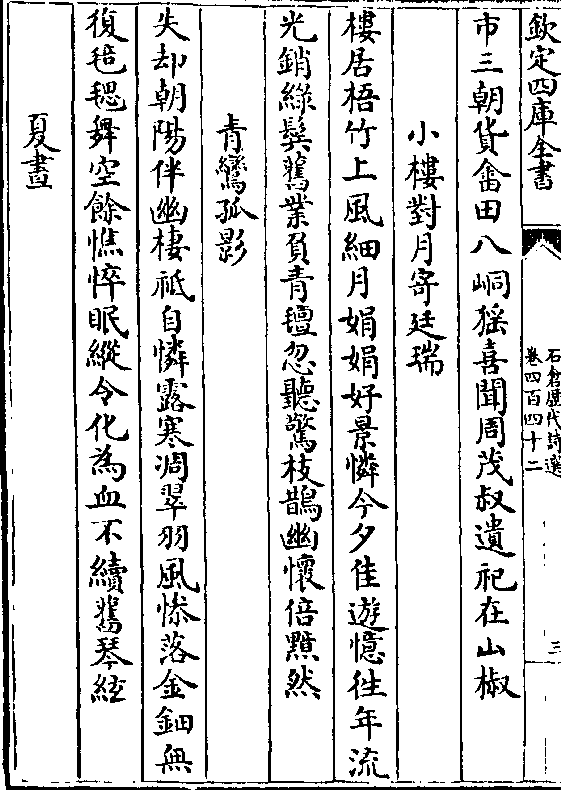 欽定四庫全書
石倉歷代詩選
卷四百四十二
三
市三朝貨畬田八峒猺喜聞周茂叔遺祀在山椒
小樓對月寄廷瑞
樓居梧竹上風細月娟娟好景憐今夕佳遊憶往年流
光銷緑鬂舊業負青氊忽聽驚枝鵲幽懷倍黯然
青鸞孤影
失却朝陽伴幽棲祗自憐露寒凋翠羽風慘落金鈿無
復毰毸舞空餘憔悴眠縱令化為血不續舊琴絃
夏晝